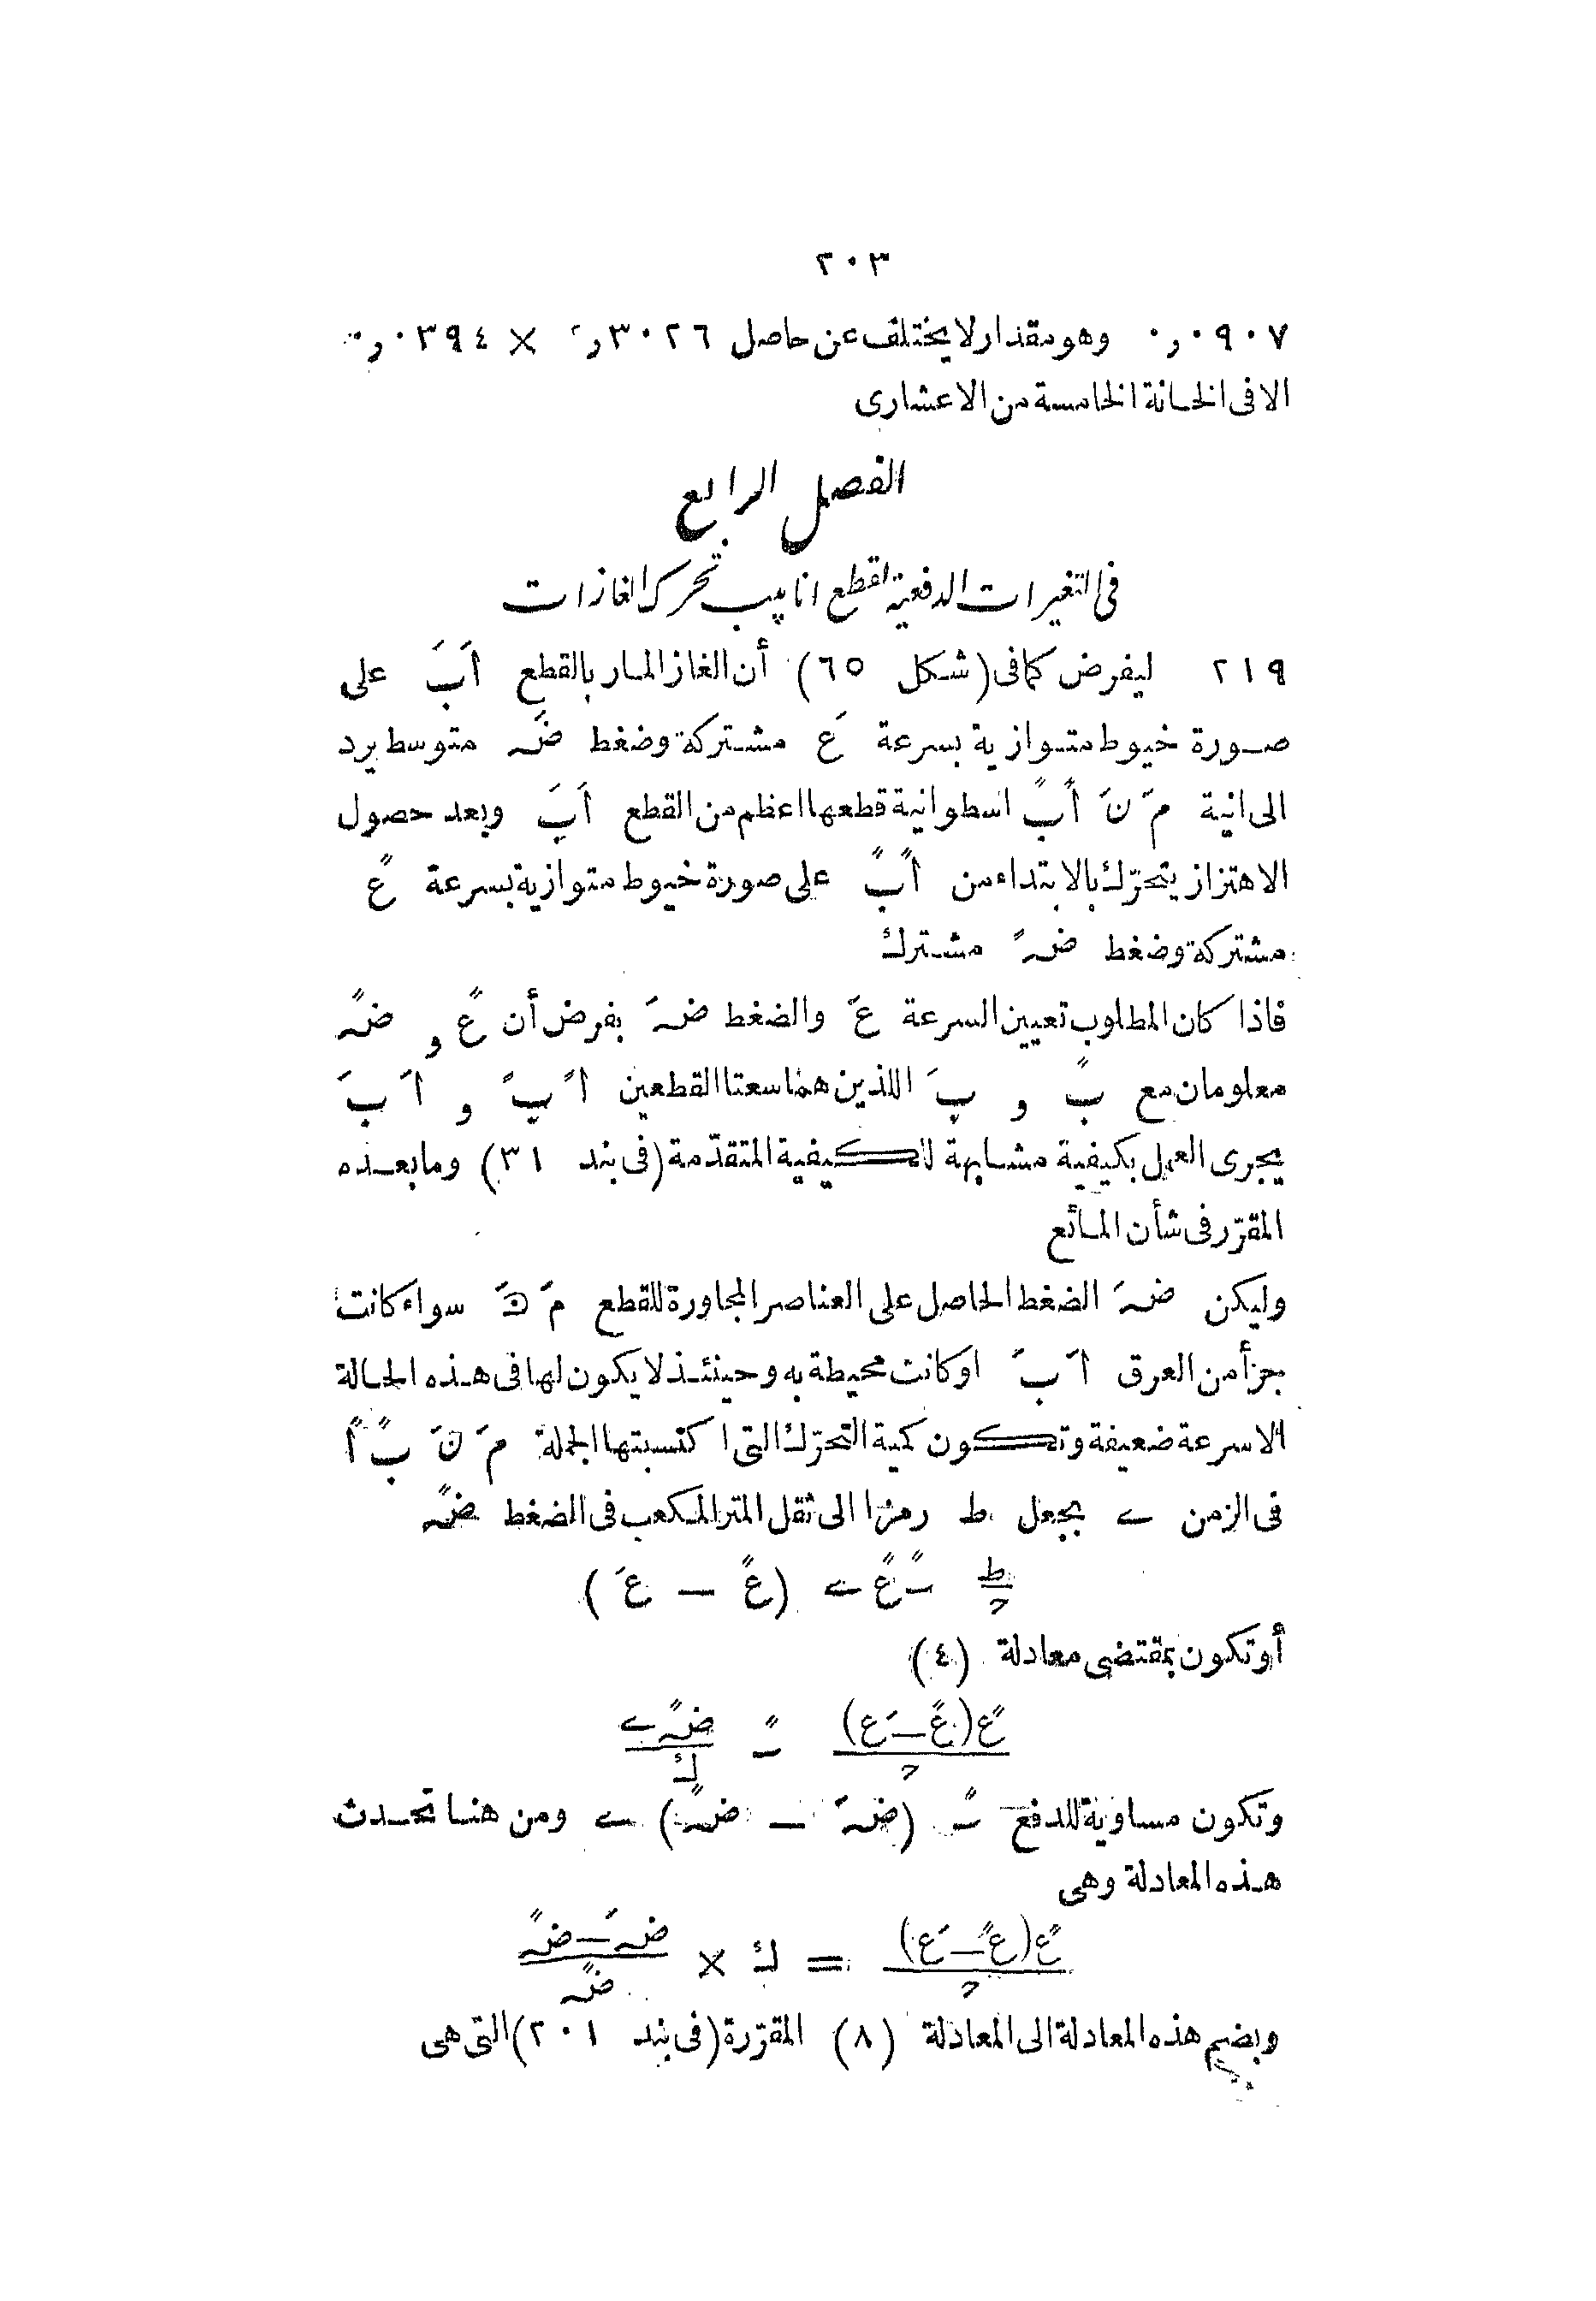 ٢٠٣
٠٩٠٧ر٠ وهو مقدار لا يختلف عن حاصل ٣٠٢٦ر × ٠٣٩٤ر٠
الا فى الخانة الخامسة من الاعشارى
الفصل الرابع
فى التغيرات الدفعية لقطع انابيب تحرك الغازات
٢١٩ ليفرض كما فى (شكل ٦٥) أن الغاز المار بالقطع اَبَ على
صورة خيوط متوازية بسرعة عَ مشتركة وضغط ضہَ متوسط يرد
الى انية مَ نَ اًبً اسطوانية قطعها اعظم من القطع اَبَ وبعد حصول
الاهتزاز يتحرّك بالابتداء من اًبً على صورة خيوط متوازية بسرعة عً
مشتركة وضغط ضہً مشترك
فاذا كان المطلوب تعيين السرعة عَ والضغط ضہَ بفرض أن عً و ضہً
معلومان مع بً و بَ اللذين هما سعتا القطعين اً بً و اَ بَ
يجرى العمل بكيفية مشابهة للكيفية المتقدّمة (فى بند ٣١) وما بعده
المقرّر فى شأن المائع
وليكن ضہَ الضغط الحاصل على العناصر المجاورة للقطع مَ نَ سواء كانت
جزأ من العرق اَ بَ او كانت محيطة به وحينئذ لا يكون لها فى هذه الحالة
الا سرعة ضعيفة وتكون كمية التحرّك التى اكتسبتها الجملة مَ نَ بً اً
فى الزمن ے بجعل ط رمزا الى ثقل المتر المكعب فى الضغط ضہً
ط/ح ٮً عً ے (عً — عَ)
أو تكون بمقتضى معادلة (٤)
عً(عً—عَ)/ح ٮً ضہًے/ك
وتكون مساوية للدفع ٮً (ضہَ — ضہً) ے ومن هنا تحدث
هذه المعادلة وهى
عً(عً—عَ)/ح = ك × ضہَ—ضہً/ضہً
وبضم هذه المعادلة الى المعادلة (٨) المقرّرة (فى بند ٢٠١) التى هى